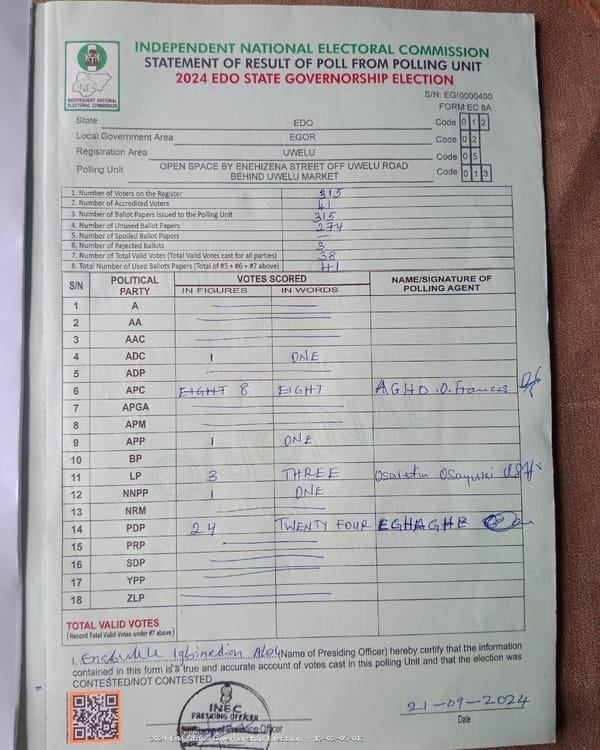 INDEPENDENT NATIONAL ELECTORAL COMMISSION
STATEMENT OF RESULT OF POLL FROM POLLING UNIT
2024 EDO STATE GOVERNORSHIP ELECTION
INEC
INDEPENDENT NATIONAL
ELECTORAL COMMISSION
S/N: EG/0000400
FORM EC 8A
State EDO Code 0 1 2
Local Government Area EGOR Code 0 2
Registration Area UWELU Code 0 5
Polling Unit OPEN SPACE BY ENEHIZENA STREET OFF UWELU ROAD
BEHIND UWELU MARKET Code 0 1 3
1. Number of Voters on the Register 315
2. Number of Accredited Voters 41
3. Number of Ballot Papers Issued to the Polling Unit 315
4. Number of Unused Ballot Papers 274
5. Number of Spoiled Ballot Papers —
6. Number of Rejected Ballots 3
7. Number of Total Valid Votes (Total Valid Votes cast for all parties) 38
8. Total Number of Used Ballots Papers (Total of #5 + #6 + #7 above) 41
S/N POLITICAL PARTY VOTES SCORED NAME/SIGNATURE OF POLLING AGENT
IN FIGURES IN WORDS
1 A
2 AA
3 AAC
4 ADC 1 ONE
5 ADP
6 APC EIGHT 8 EIGHT AGHO .O. Francis
7 APGA
8 APM
9 APP 1 ONE
10 BP
11 LP 3 THREE Osaretin Osayuki
12 NNPP 1 ONE
13 NRM
14 PDP 24 TWENTY FOUR EGHAGHE
15 PRP
16 SDP
17 YPP
18 ZLP
TOTAL VALID VOTES
(Record Total Valid Votes under #7 above)
I, Igbinedion (Name of Presiding Officer) hereby certify that the information
contained in this form is a true and accurate account of votes cast in this polling Unit and that the election was
CONTESTED/NOT CONTESTED
INEC
PRESIDING OFFICER
21-09-2024
Date
2024 Edo State Governorship Election - 12-02-05-013